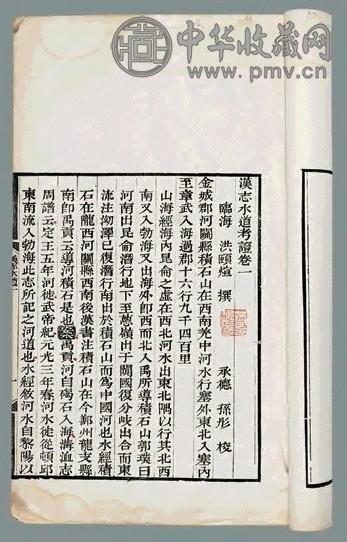 中华收藏网
www.pmv.cn
漢志水道考證卷一
臨海 洪頤煊 撰 承德 孫彤 校
金城郡河關縣積石山在西南羌中河水行塞外東北入塞內
至章武入海過郡十六行九千四百里
山海經海內昆侖之虛在西北河水出東北隅以行其北西
南又入勃海又出海外即西而北入禹所導積石山郭璞曰
河南出昆侖潛行地下至蔥嶺出于闐國復分岐出合而東
流注泑澤已復潛行南出於積石山而為中國河也水經積
石在隴西河關縣西南後漢書注積石山在今鄯州龍支縣
南即禹貢云導河積石是也案禹貢河自碣石入海溝洫志
周譜云定王五年河徙武帝紀元光三年春河水徙從頓邱
東南流入勃海此志所記之河道也水經敘河水自黎陽以